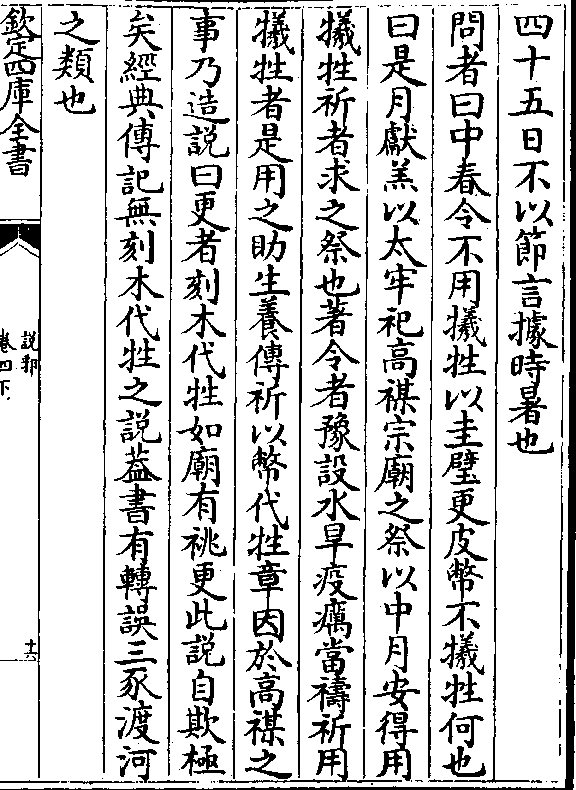 四十五日不以節言據時暑也
問者曰中春令不用犧牲以圭璧更皮幣不犧牲何也
曰是月獻羔以太牢祀高禖宗廟之祭以中月安得用
犧牲祈者求之祭也著令者豫設水旱疫癘當禱祈用
犧牲者是用之助生養傳祈以幣代牲章因於高禖之
事乃造說曰更者刻木代牲如廟有祧更此說自欺極
矣經典傳記無刻木代牲之說葢書有轉誤三豕渡河
之類也
欽定四庫全書
說郛
卷四下
十六